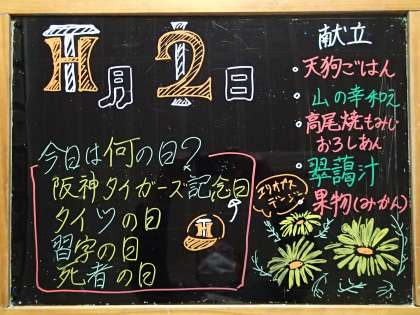 11月2日
今日は何の日?
阪神タイガース記念日
タイツの日
習字の日
死者の日
H
献立
・天狗ごはん
・山の幸和え
・高尾焼もみじ
おろしあん
・翠靄汁
果物(みかん)